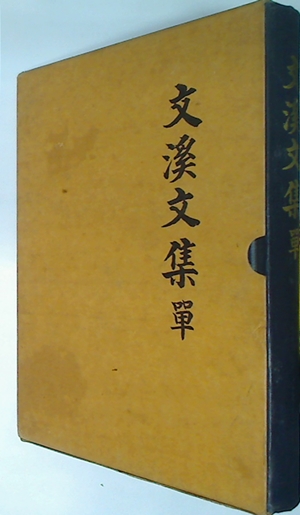 文溪文集 單
文溪文集單